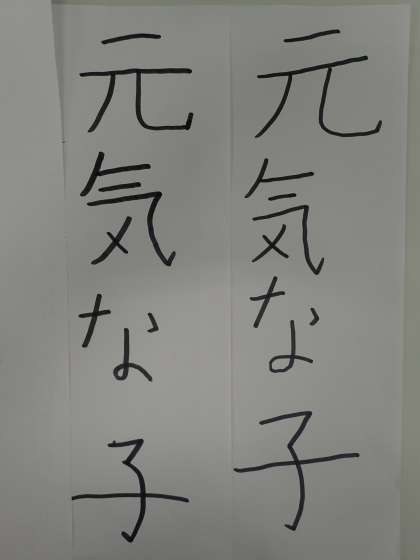 元気な子
元気な子